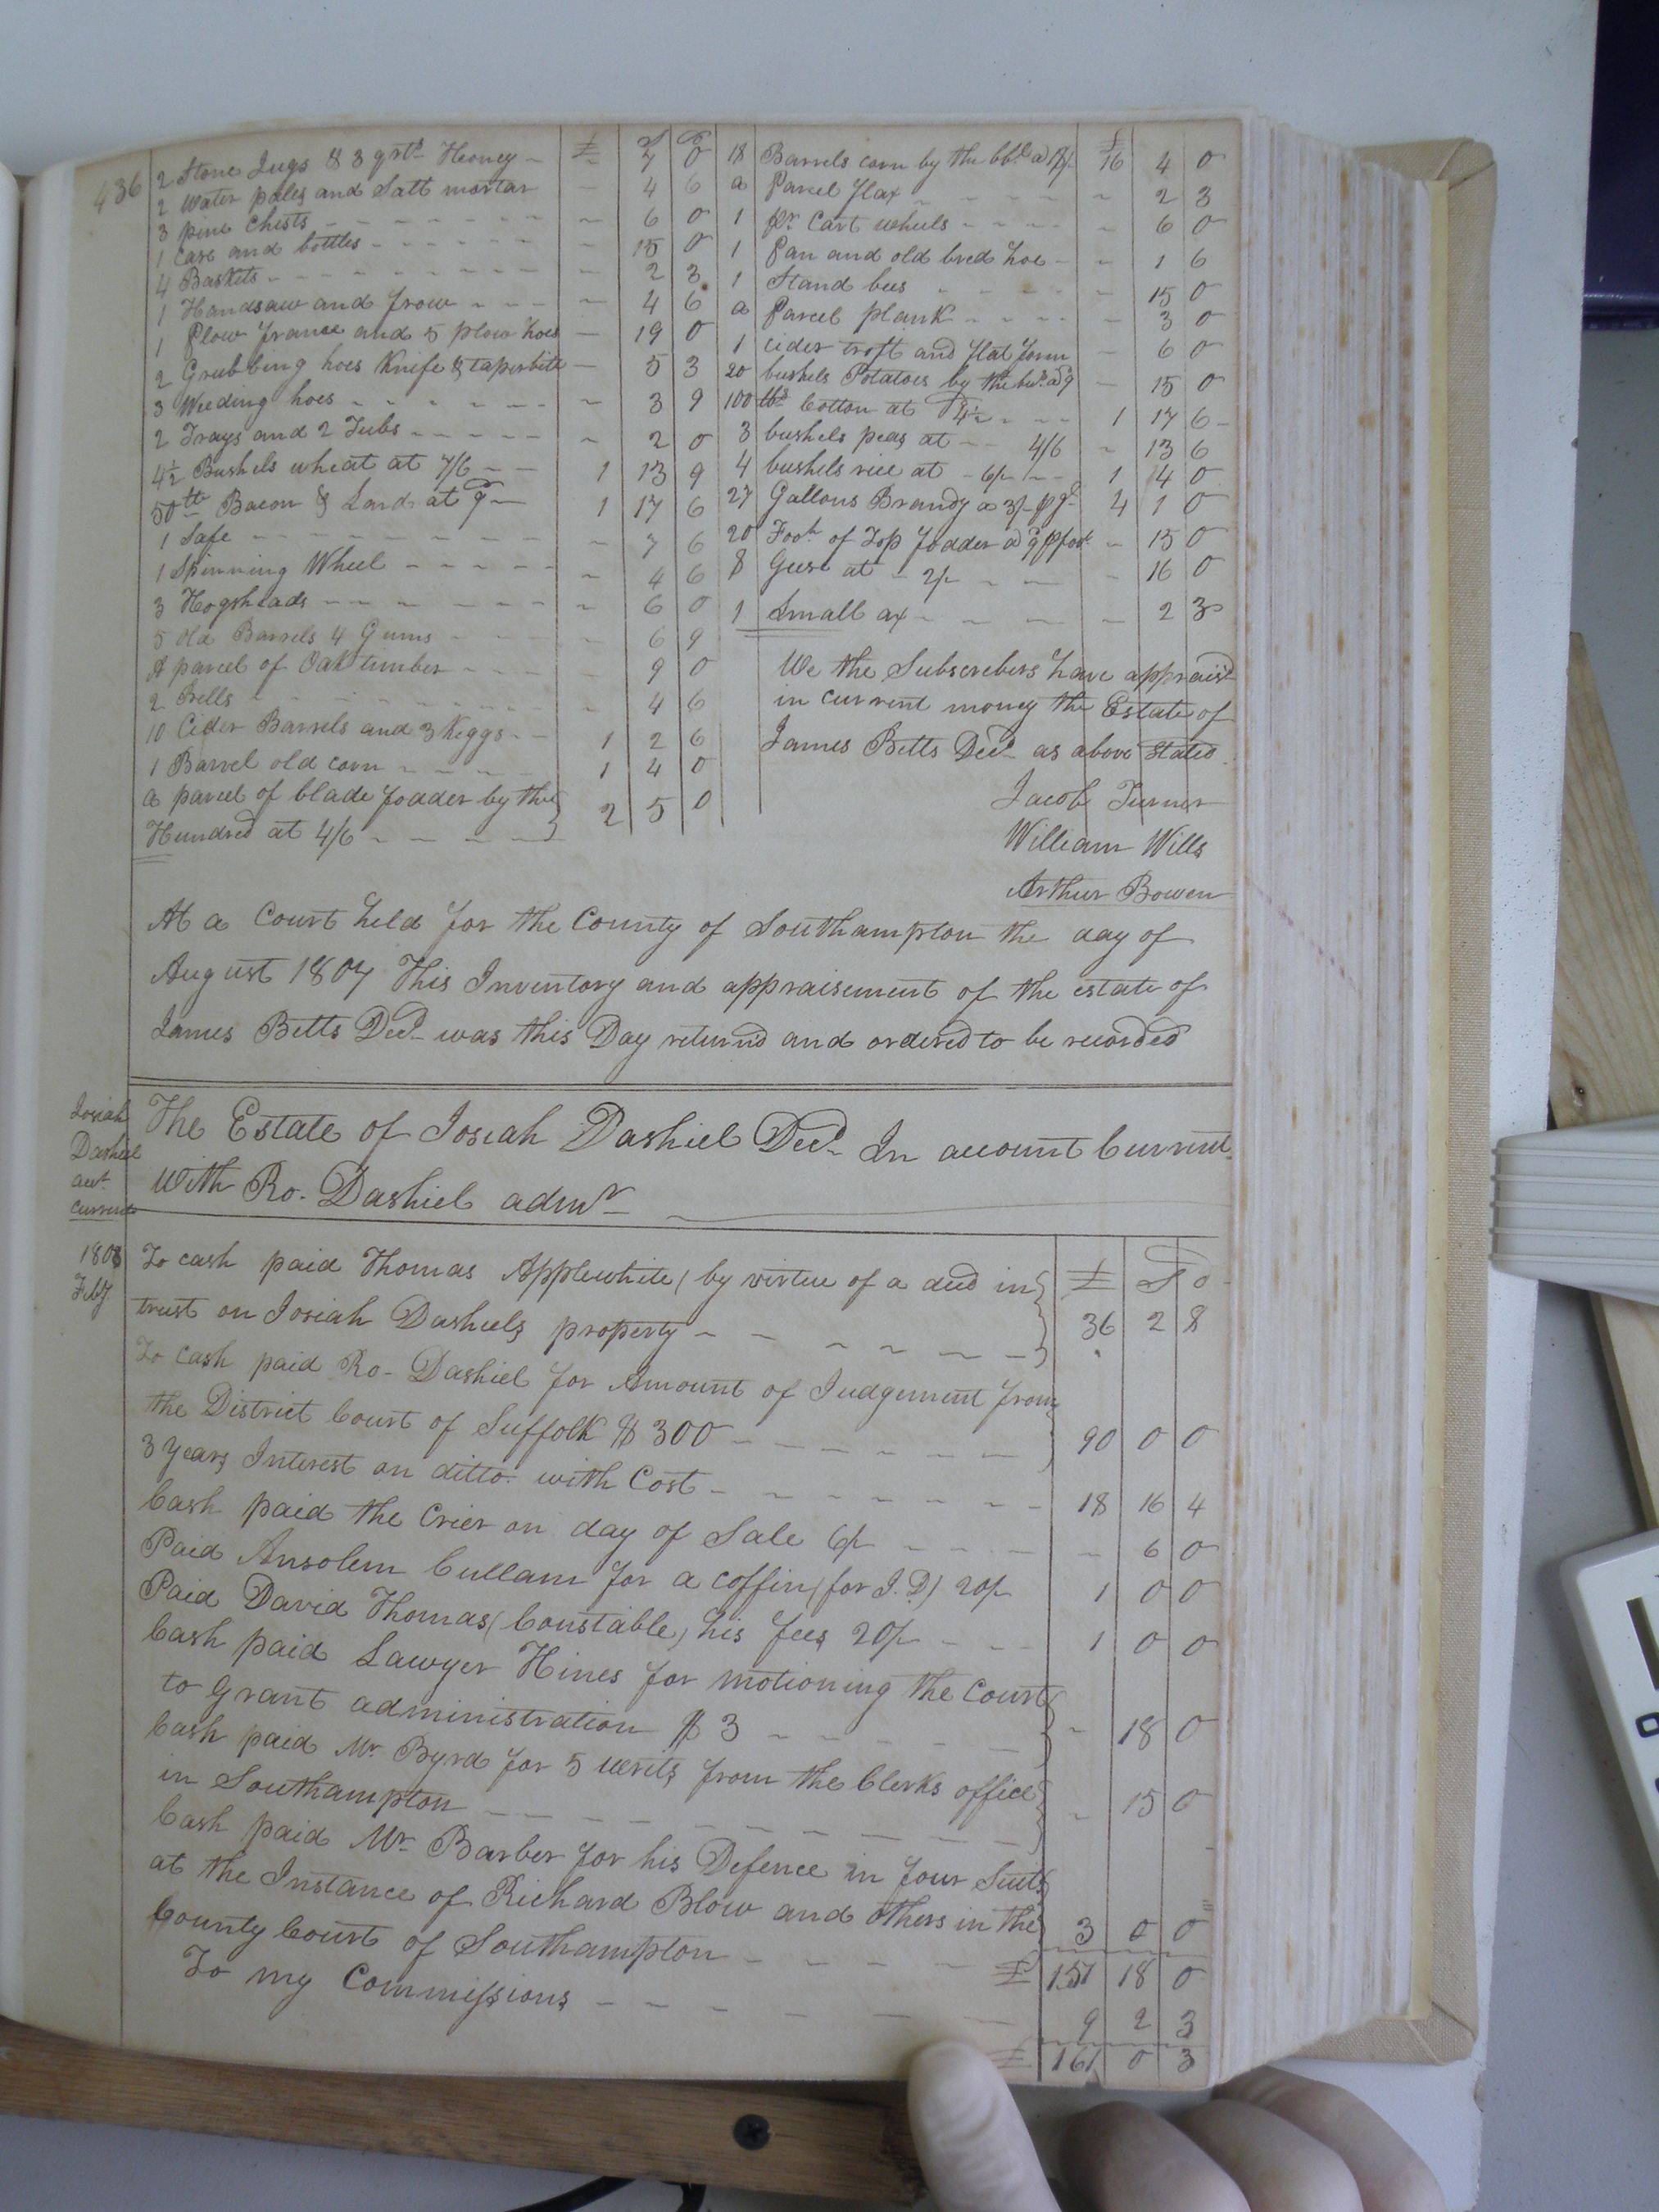 436
£ S D
2 Stone Jugs & 3 qrts Honey – ~ 7 0
2 Water pales and Salt mortar – 4 6
3 pine Chests ~ 6 0
1 Case and bottles – 15 0
4 Baskets – 2 3
1 Handsaw and frow ~ 4 6
1 Plow frame and 5 plow hoes – 19 0
2 Grubbing hoes Knife & taperbitt – 5 3
3 Weeding hoes ~ 3 9
2 Trays and 2 Tubs ~ 2 0
4½ Bushels wheat at 7/6 1 13 9
50 lb Bacon & Lard at 9 1 17 6
1 Safe ~ 7 6
1 Spinning Wheel ~ 4 6
3 Hogsheads ~ 6 0
5 old Barrels 4 Gums ~ 6 9
A parcel of Oak timber – 9 0
2 Bells ~ 4 6
10 Cider Barrels and 3 Keggs 1 2 6
1 Barrel old corn 1 4 0
a parcel of blade fodder by the
Hundred at 4/6 2 5 0
£
18 Barrels corn by the bbl a 18/ 16 4 0
a Parcel flax ~ 2 3
1 pr Cart wheels ~ 6 0
1 Pan and old bred hoe ~ 1 6
1 Stand bees ~ 15 0
a Parcel plank – 3 0
1 cider troft and flat form – 6 0
20 bushels Potatoes by the bus. a 9 – 15 0
100 lbs Cotton at 4½ 1 17 6
3 bushels peas at 4/6 ~ 13 6
4 bushels rice at 6/ 1 4 0
27 Gallons Brandy a 3/ p gl 4 1 0
20 Foot of Top fodder a 9 p foot ~ 15 0
8 Geese at 2/ ~ 16 0
1 Small ax ~ 2 3
We the Subscribers have apprais'd
in current money the Estate of
James Betts Decd as above Stated
Jacob Turner
William Wills
Arthur Bowen
At a Court held for the County of Southampton the day of
August 1807 This Inventory and appraisement of the estate of
James Betts Decd was this Day return'd and ordered to be recorded
Josiah
Dashiel
acct
Current
The Estate of Josiah Dashiel Decd In account Current
With Ro. Dashiel admr
£ S D
1808
Feby
To cash paid Thomas Applewhite (by virtue of a deed in
trust on Josiah Dashiels property 36 2 8
To cash paid Ro- Dashiel for Amount of Judgement from
the District Court of Suffolk $300 90 0 0
3 Years Interest on ditto with Cost 18 16 4
Cash paid the Crier on day of Sale 6/ ~ 6 0
Paid Ansolem Cullam for a coffin (for J. D) 20/ 1 0 0
Paid David Thomas (Constable) his fees 20/ 1 0 0
Cash paid Lawyer Hines for motioning the Court
to grant administration $3 ~ 18 0
Cash paid Mr Byrd for 5 writs from the Clerks office
in Southampton ~ 15 0
Cash paid Mr Barber for his Defence in four Suits
at the Instance of Richard Blow and others in the
County Court of Southampton 3 0 0
£ 151 18 0
To my Commissions 9 2 3
£ 161 0 3